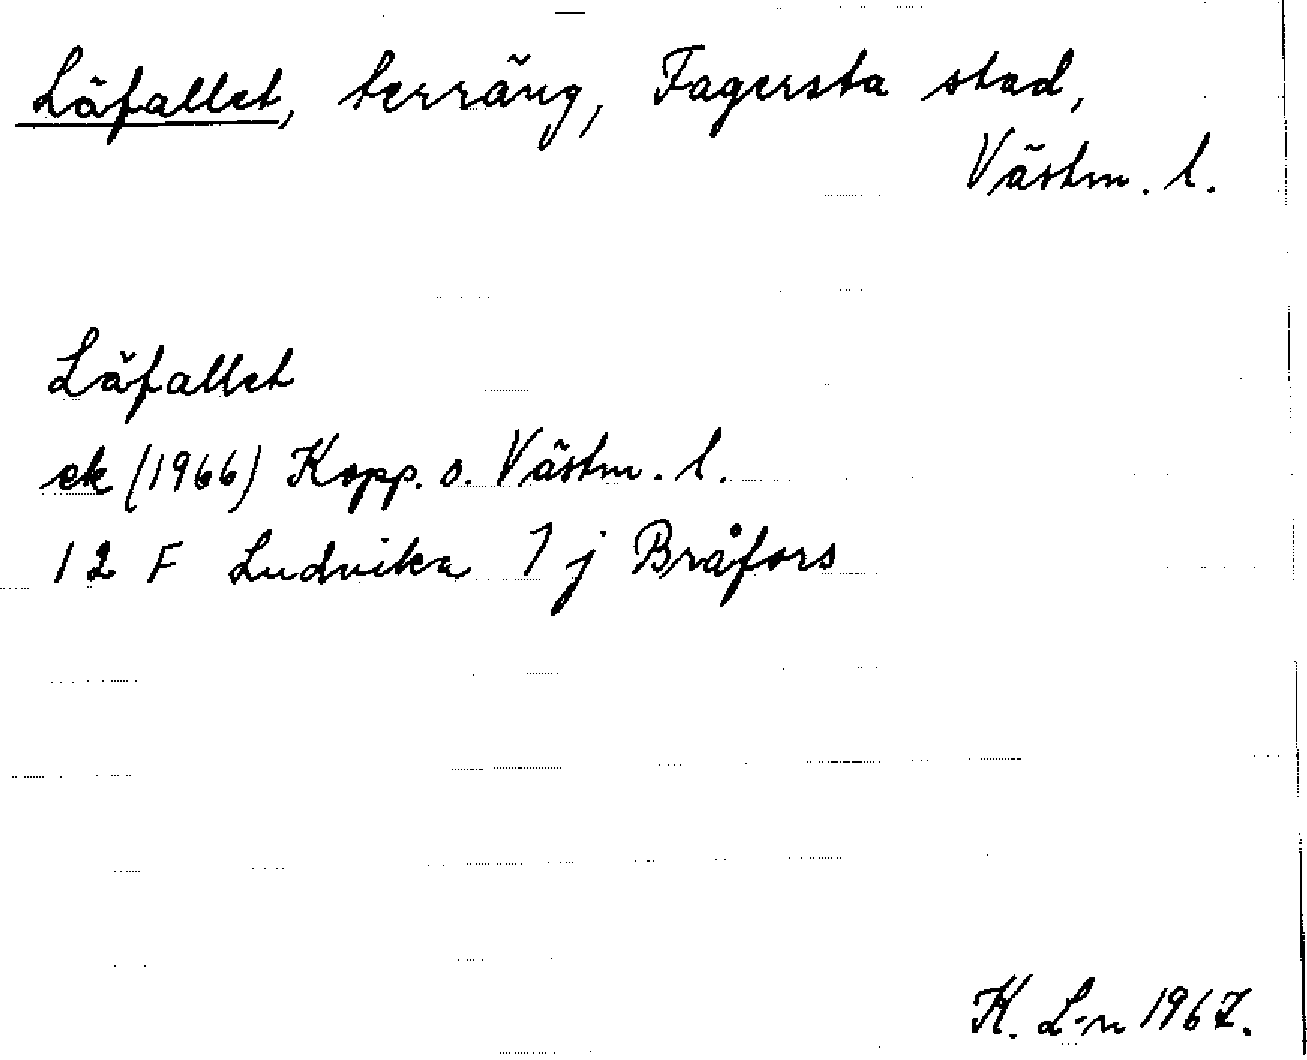 Läfallet, terräng, Fagersta stad,
Västm. l.
Läfallet
ek (1966) Kopp. o. Västm. l.
12 F Ludvika 7 j Bråfors
K. L-n 1967.